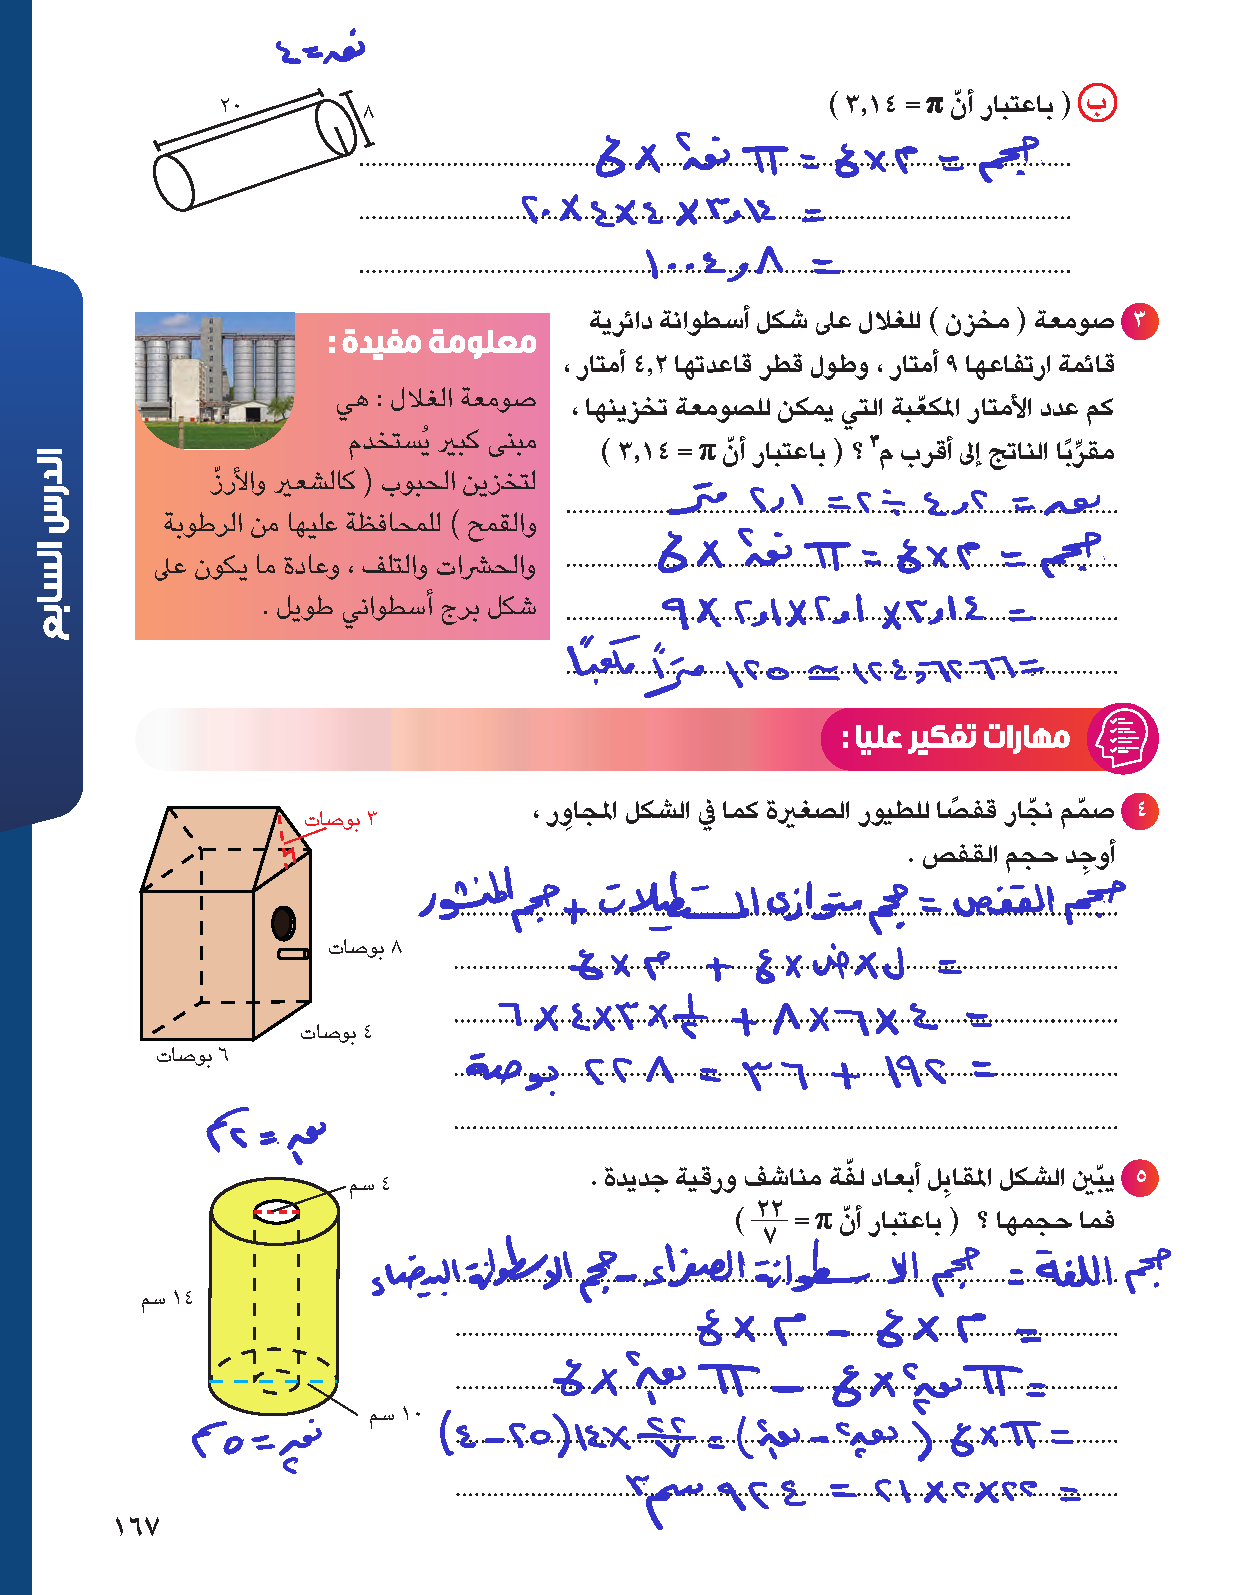 نق = ٤
٢٠
٨
ب ( باعتبار أنّ π = ٣,١٤ )
حجم = م × ع = π نق² × ع
= ٣,١٤ × ٤ × ٤ × ٢٠
= ١٠٠٤,٨
٣ صومعة ( مخزن ) للغلال على شكل أسطوانة دائرية
قائمة ارتفاعها ٩ أمتار ، وطول قطر قاعدتها ٤,٢ أمتار ،
كم عدد الأمتار المكعّبة التي يمكن للصومعة تخزينها ،
مقرِّبًا الناتج إلى أقرب م³ ؟ ( باعتبار أنّ π = ٣,١٤ )
نق = ٤,٢ ÷ ٢ = ٢,١ متر
حجم = م × ع = π نق² × ع
= ٣,١٤ × ٢,١ × ٢,١ × ٩
= ١٢٤,٦٢٦٦ ≃ ١٢٥ مترًا مكعبًا
معلومة مفيدة :
صومعة الغلال : هي
مبنى كبير يُستخدم
لتخزين الحبوب ( كالشعير والأرزّ
والقمح ) للمحافظة عليها من الرطوبة
والحشرات والتلف ، وعادة ما يكون على
شكل برج أسطواني طويل .
الدرس السابع
مهارات تفكير عليا :
٤ صمّم نجّار قفصًا للطيور الصغيرة كما في الشكل المجاوِر ،
أوجِد حجم القفص .
٣ بوصات
٨ بوصات
٤ بوصات
٦ بوصات
حجم القفص = حجم متوازي المستطيلات + حجم المنشور
= ل × ض × ع + م × ع
= ٤ × ٦ × ٨ + ½ × ٣ × ٤ × ٦
= ١٩٢ + ٣٦ = ٢٢٨ بوصة
٥ يبّين الشكل المقابِل أبعاد لفّة مناشف ورقية جديدة .
فما حجمها ؟ ( باعتبار أنّ π = ٢٢/٧ )
نق١ = ٢م
٤ سم
١٤ سم
١٠ سم
نق٢ = ٥م
حجم اللفة = حجم الاسطوانة الصفراء - حجم الاسطوانة البيضاء
= م × ع - م × ع
= π نق٢² × ع - π نق١² × ع
= π × ع ( نق٢² - نق١² ) = ٢٢/٧ × ١٤ (٢٥ - ٤)
= ٢٢ × ٢ × ٢١ = ٩٢٤ سم³
١٦٧